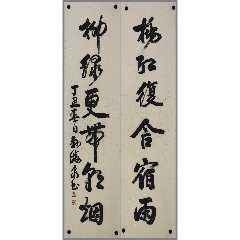 桃红復含宿雨
柳緑更帶朝烟
丁丑春日